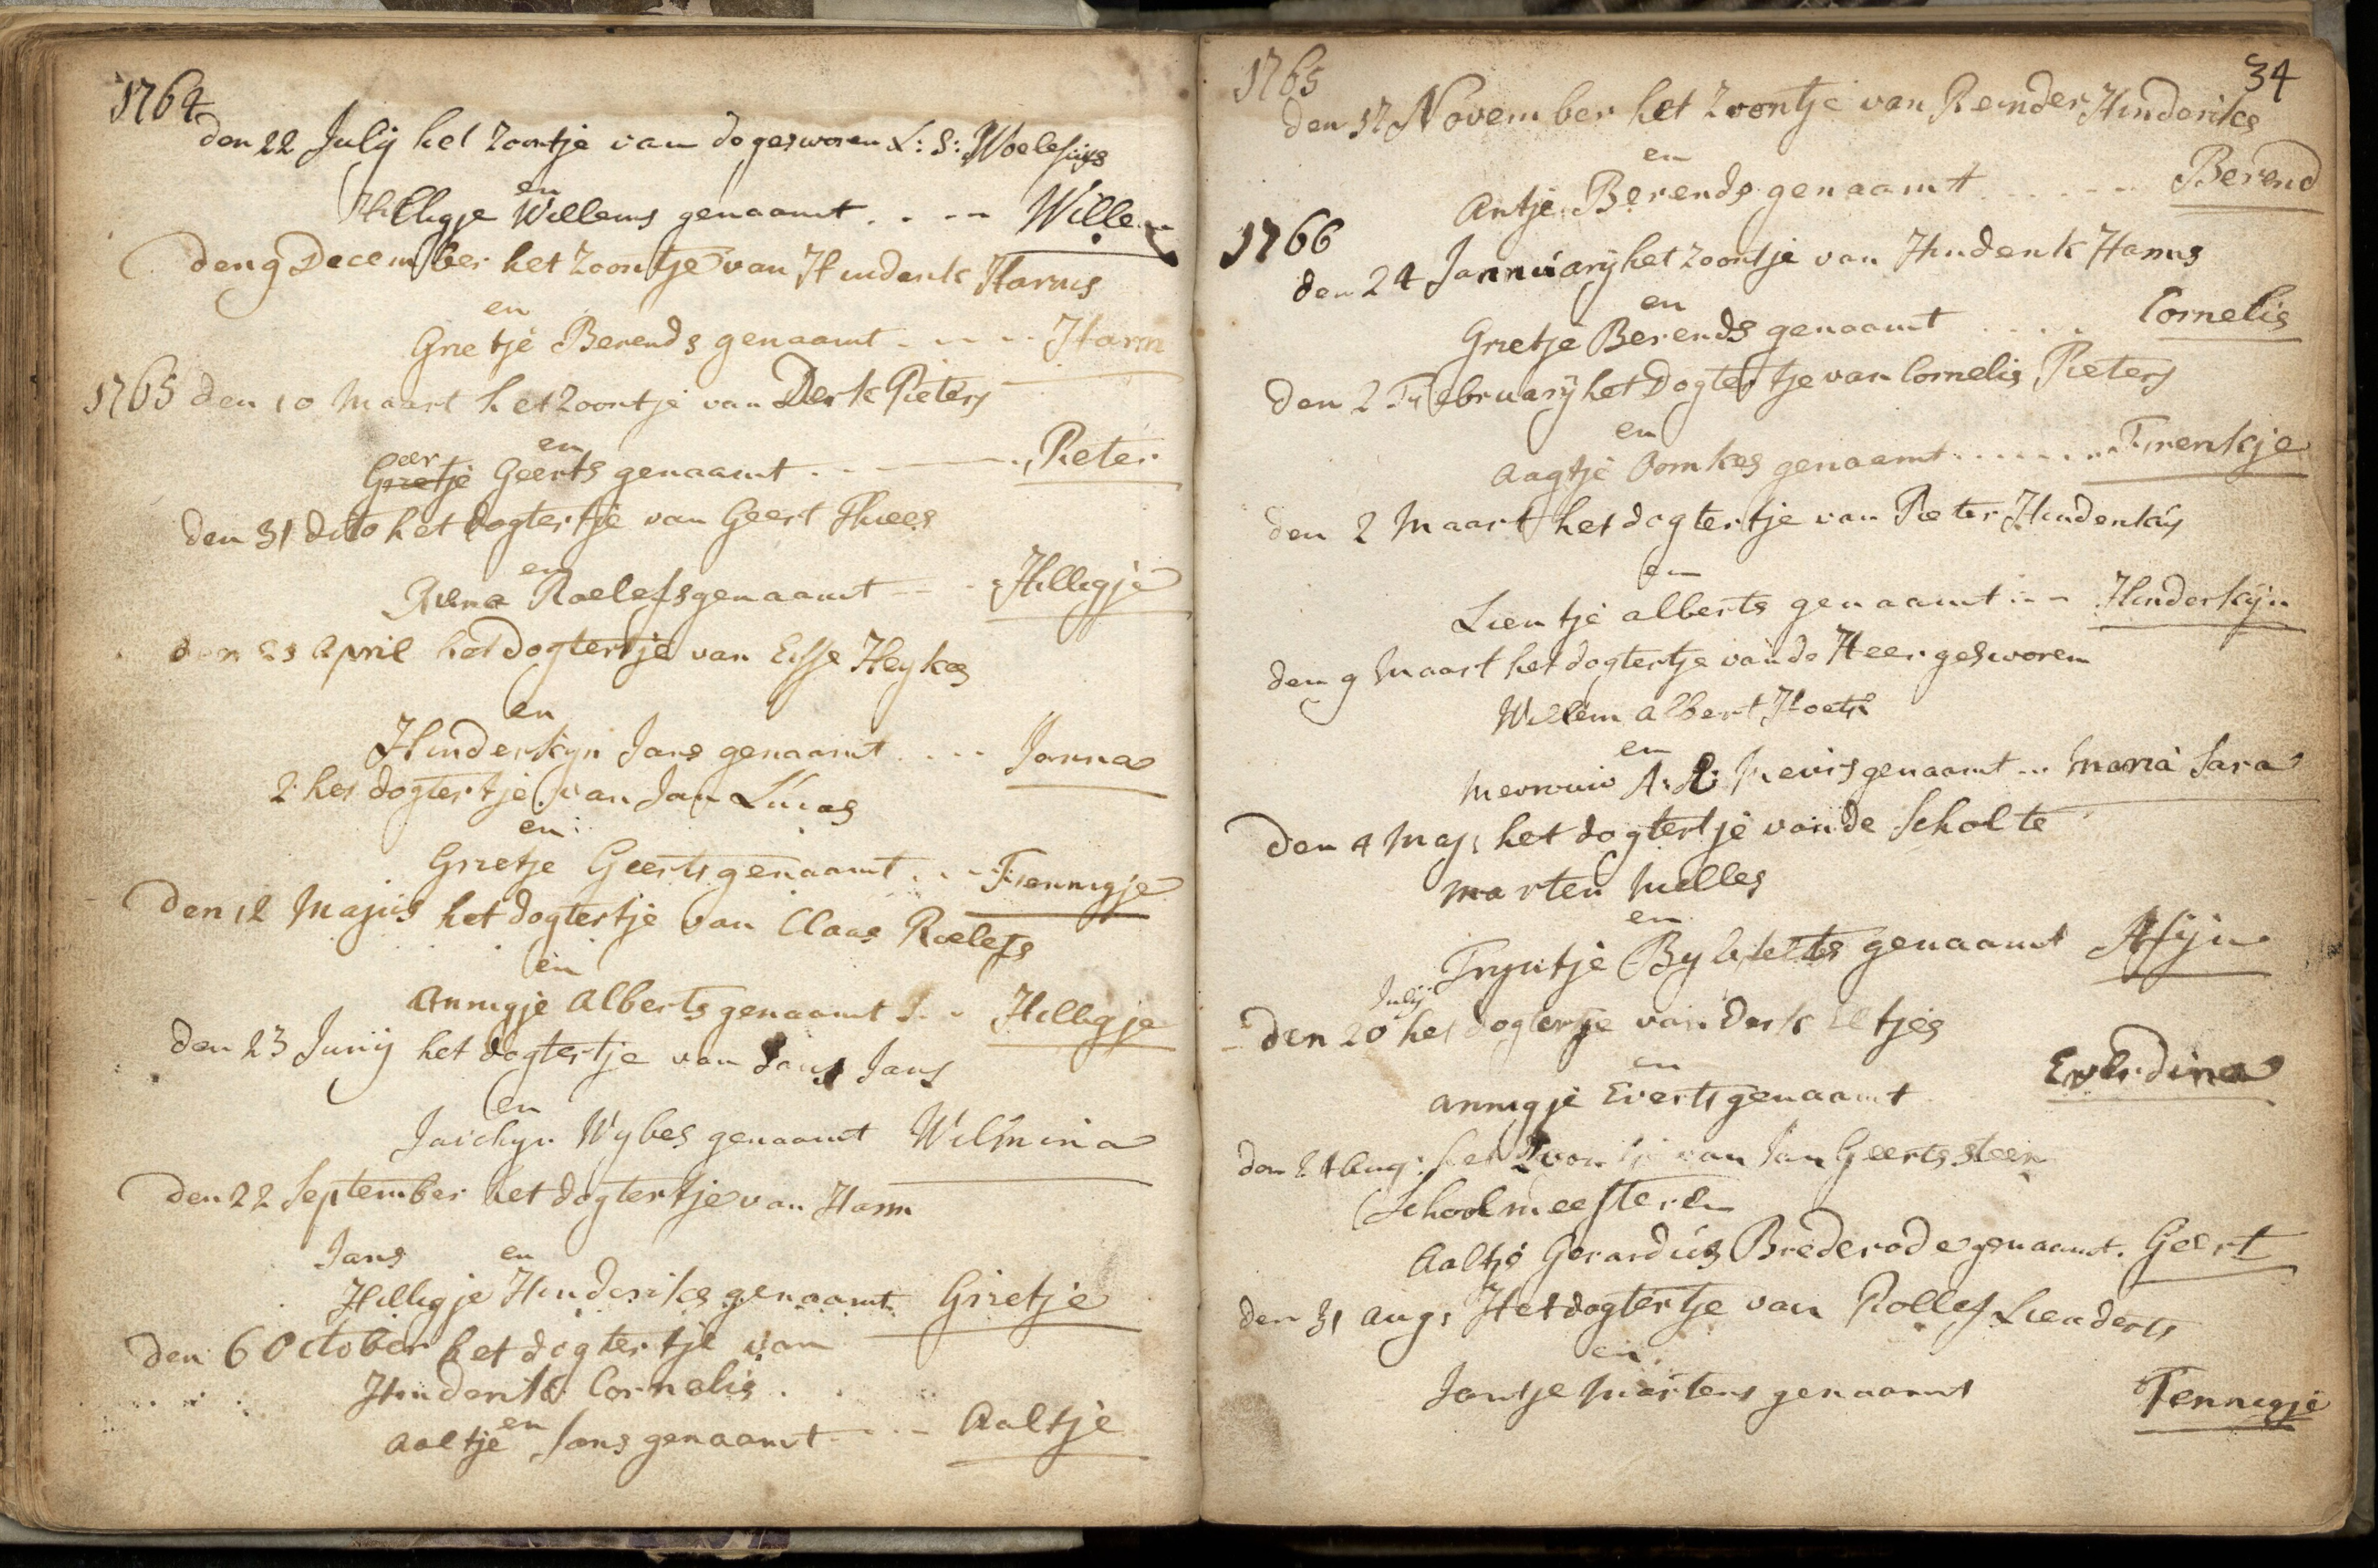 1764
den 22 Julij het Zoontje van de gesworen L: S:
en
Hilligje Willems genaamt . . - - Willem
den 9 December het Zoontje van Hinderik Harms
en
Grietje Berends genaamt - - - - - Harm
1765 den 10 Maart het Zoontje van Derk Pieters
eer en
Grietje Geerts genaamt . - - Pieter
den 31 dito het dogtertje van Geert
en
Roelefs genaamt - - - Hilligje
den April het dogtertje van Heykes
en
Hinderkyn Jans genaamt . . - - Janna
2 het dogtertje van Jan Lucas
en
Grietje Geerts genaamt . . - Fennigje
Den 12 Majus het dogtertje van Claas Roelefs
en
Annigje Alberts genaamt . . - Hilligje
den 23 Junij het dogtertje van Jans Jans
en
Wybes genaamt Wilmina
den 22 September het dogtertje van Harm
Jans en
Hilligje Hinderiks genaamt Grietje
den 6 October het dogtertje van
Hinderik Cornelis
en
Aaltje Jans genaamt - - - - Aaltje
34
1765
den 17 November het Zoontje van Reinder Hinderiks
en
Antje Berends genaamt - - - - - Berend
1766
den 24 Jannuarij het Zoontje van Hinderik Harms
en
Grietje Berends genaamt . . . . Cornelis
den 2 Februarij het Dogtertje van Cornelis Pieters
en
Aagtje Oomkes genaamt - - - - - -
den 2 Maart het dogtertje van Pieter Hinderikus
en
Lientje alberts genaamt - - - Hinderkyn
den 9 Maart het dogtertje van de Heer gesworen
Willem Albert
en
Mevrouw A: genaamt - - Maria Sara
den 4 Maj: het dogtertje van de Scholte
Marten Melles
en
Tryntje genaamt
Julij
den 20 het dogtertje van Derk Eltjes
en
annigje Everts genaamt Everdina
den Aug: het Zoontje van Jan Geerts Steen
Schoolmeester en
Aaltje Gerardus Brederode genaamt. Geert
den 31 Aug: Het dogtertje van Rollef Lienderts
en
Jantje Martens genaamt Fennigje